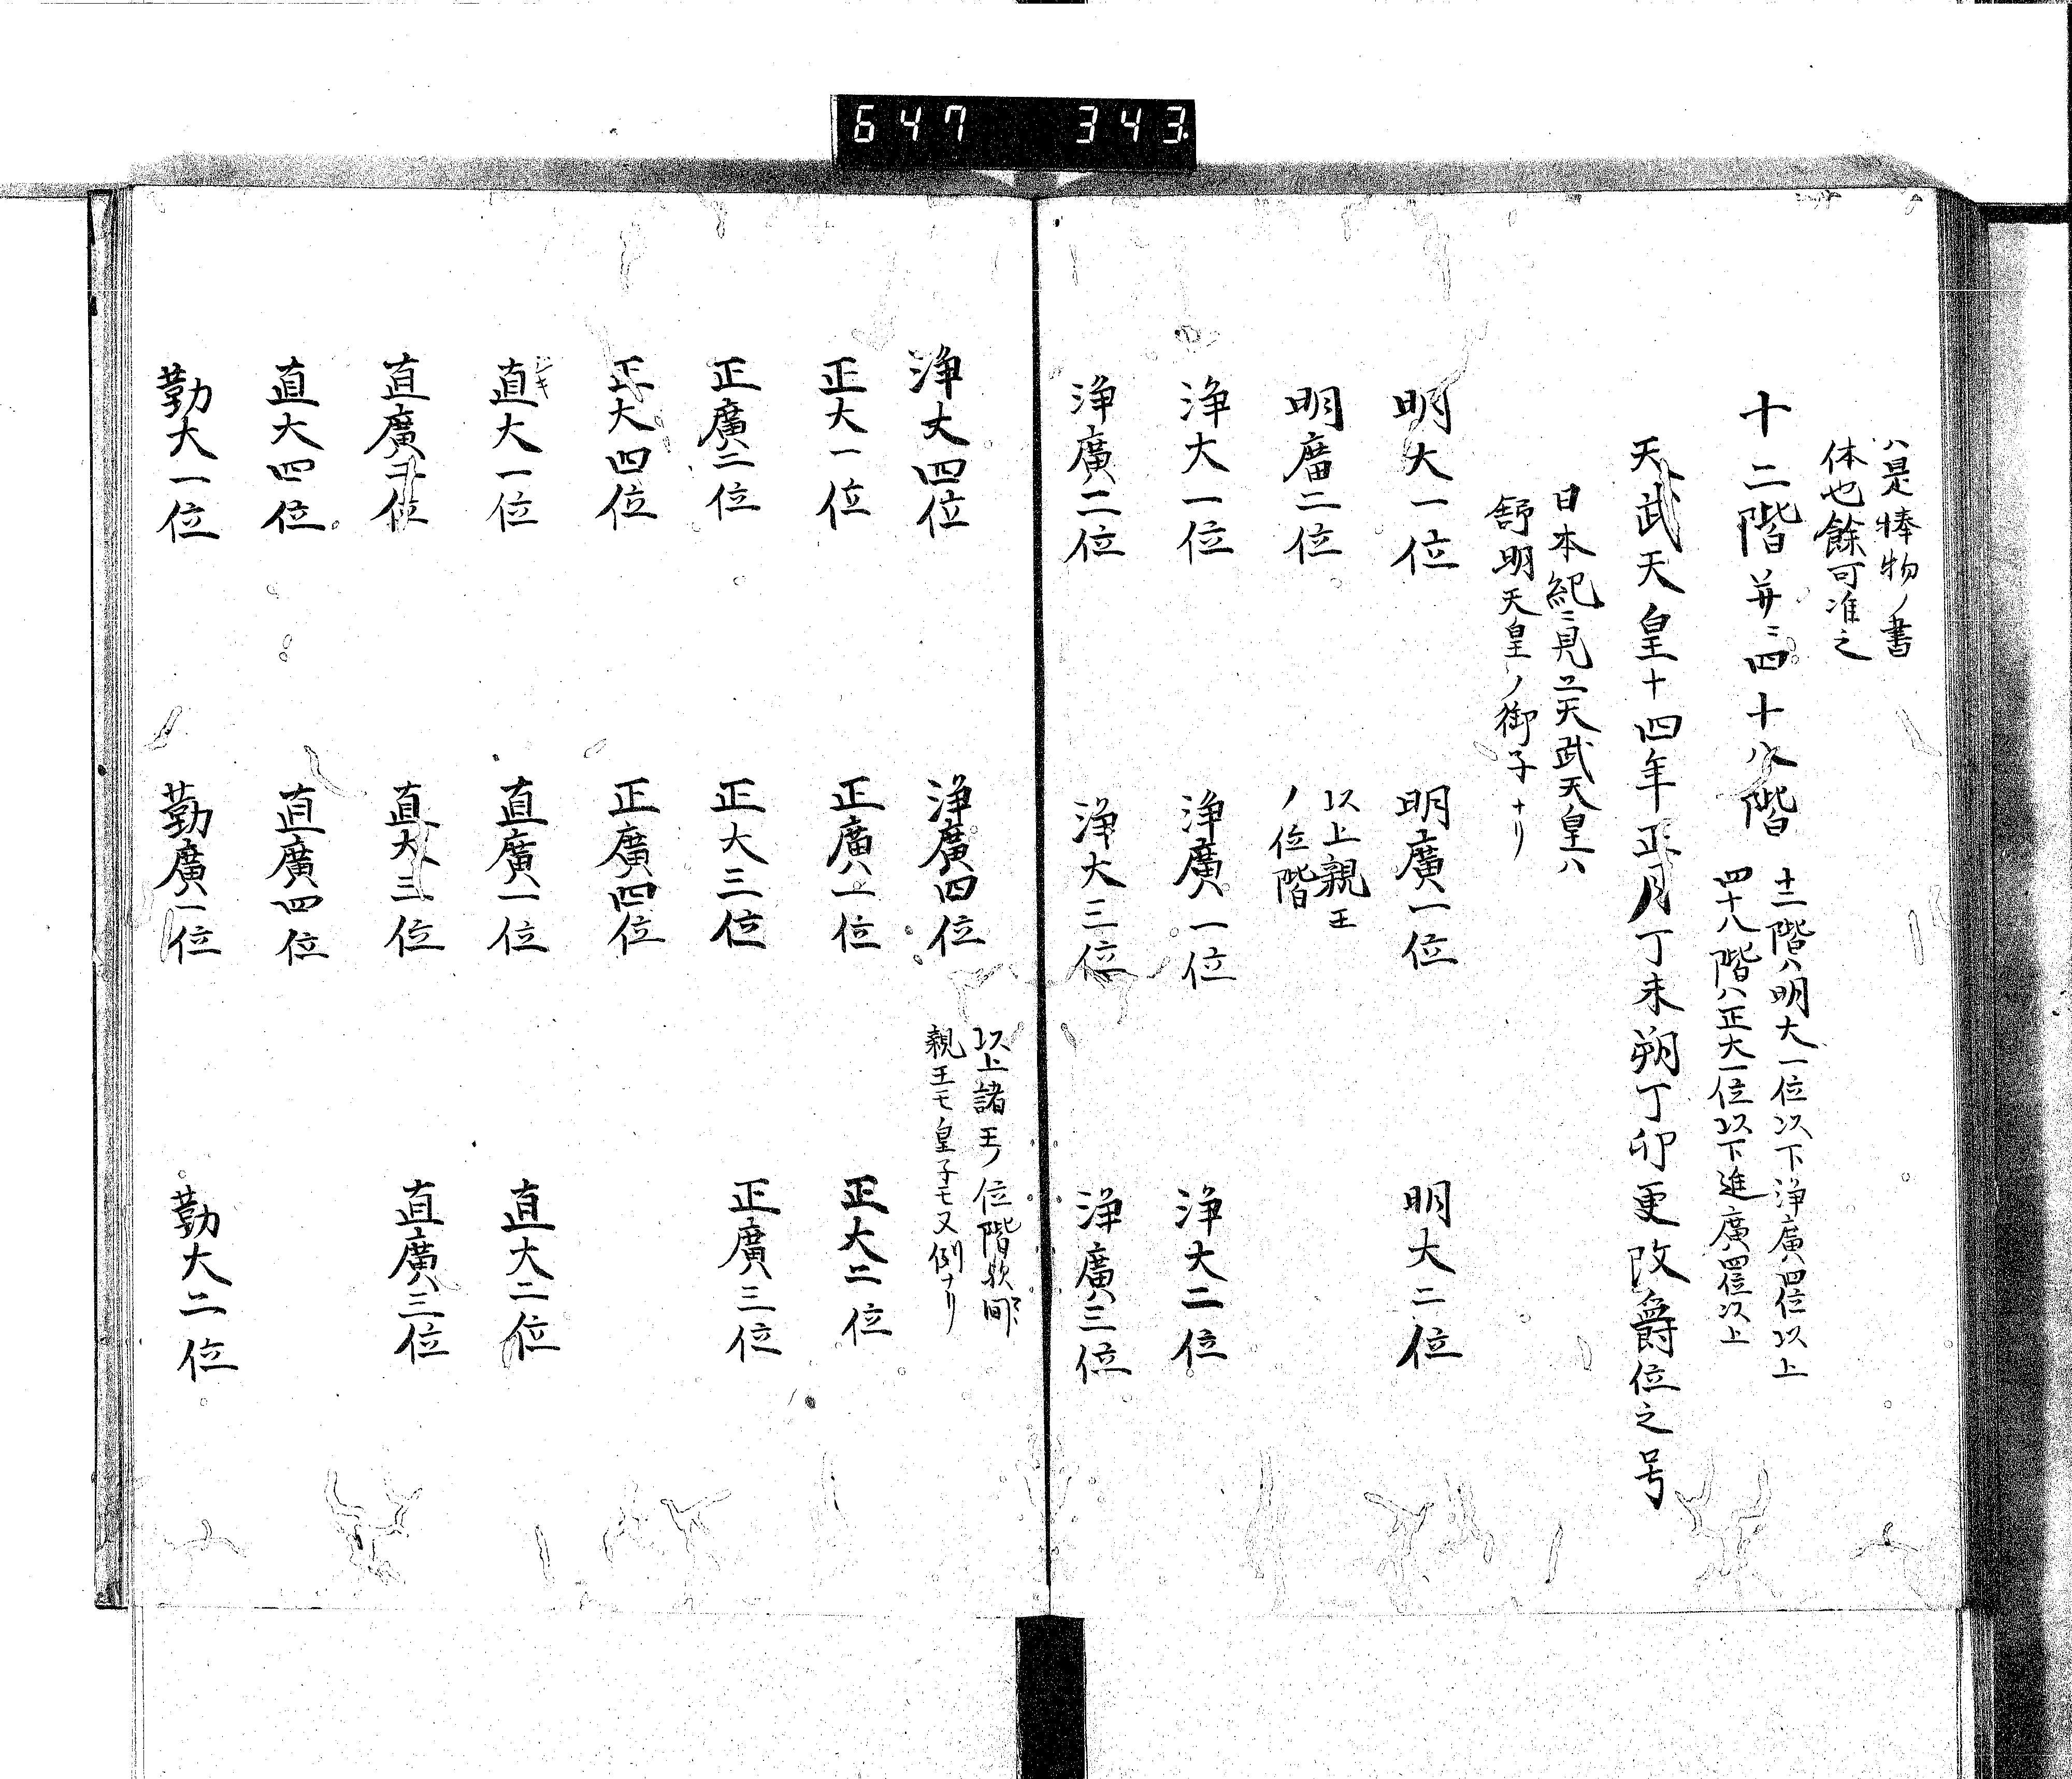 647 343
ハ是捧物ノ書
体也餘可准之
十二階并ニ四十八階
十二階ハ明大一位以下浄廣四位以上
四十八階ハ正大一位以下進廣四位以上
天武天皇十四年正月丁未朔丁卯更改爵位之号
日本紀ニ見ユ天武天皇ハ
舒明天皇ノ御子ナリ
明大一位 明廣一位 明大二位
明廣二位
以上親王
ノ位階
浄大一位 浄廣一位 浄大二位
浄廣二位 浄大三位 浄廣三位
浄大四位 浄廣四位
以上諸王ノ位階歟間
親王モ皇子モ又例ナリ
正大一位 正廣一位 正大二位
正廣二位 正大三位 正廣三位
正大四位 正廣四位
直大一位 直廣一位 直大二位
ジキ
直廣二位 直大三位 直廣三位
直大四位 直廣四位
勤大一位 勤廣一位 勤大二位